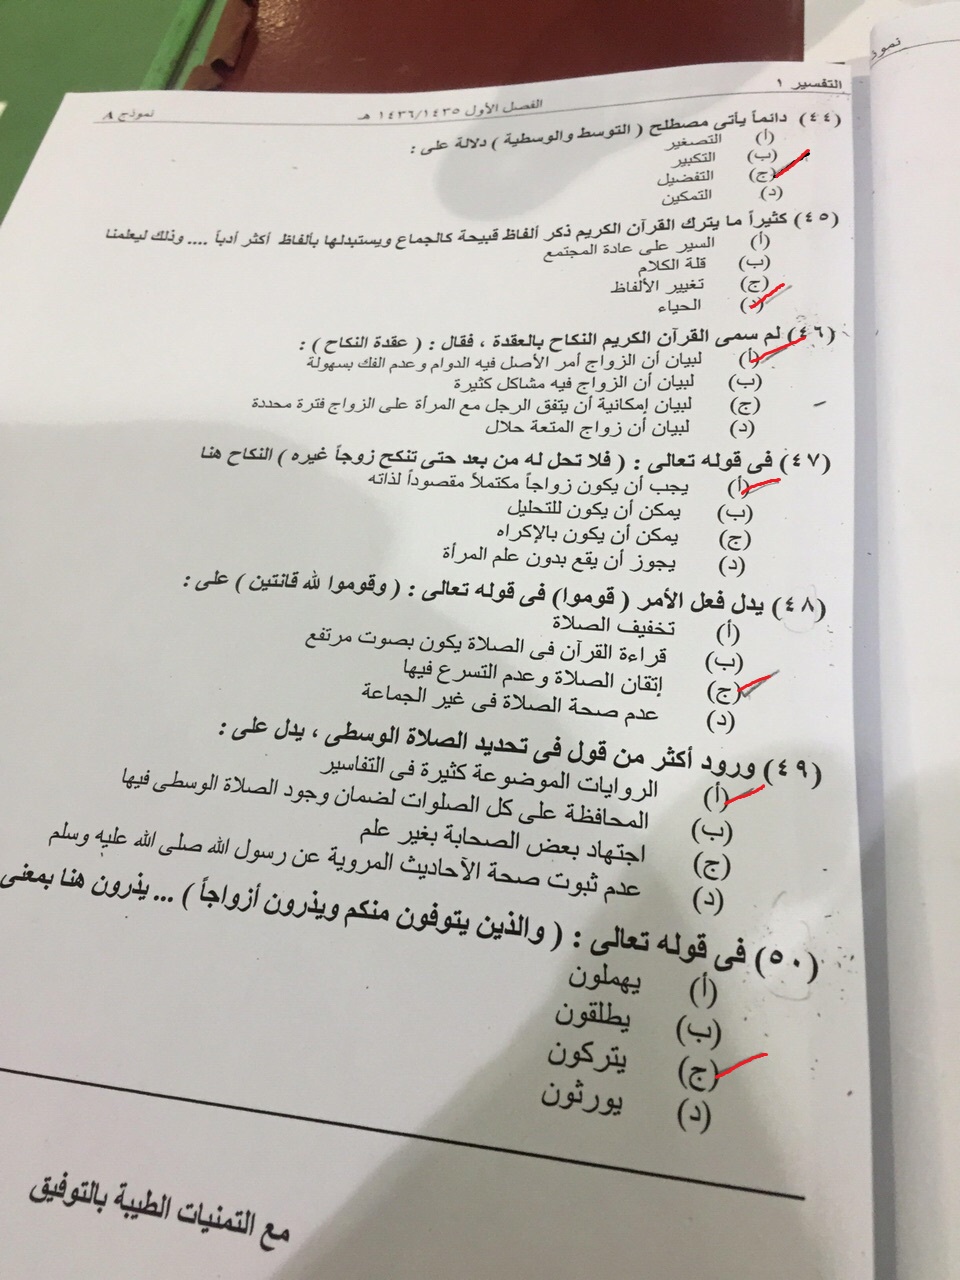 التفسير ١
الفصل الأول ١٤٣٦/١٤٣٥ هـ
نموذج A
(٤٤) دائماً يأتى مصطلح ( التوسط والوسطية ) دلالة على :
(أ) التصغير
(ب) التكبير
(ج) التفضيل
(د) التمكين
(٤٥) كثيراً ما يترك القرآن الكريم ذكر ألفاظ قبيحة كالجماع ويستبدلها بألفاظ أكثر أدباً .... وذلك ليعلمنا
(أ) السير على عادة المجتمع
(ب) قلة الكلام
(ج) تغيير الألفاظ
(د) الحياء
(٤٦) لم سمى القرآن الكريم النكاح بالعقدة ، فقال : ( عقدة النكاح ) :
(أ) لبيان أن الزواج أمر الأصل فيه الدوام وعدم الفك بسهولة
(ب) لبيان أن الزواج فيه مشاكل كثيرة
(ج) لبيان إمكانية أن يتفق الرجل مع المرأة على الزواج فترة محددة
(د) لبيان أن زواج المتعة حلال
(٤٧) فى قوله تعالى : ( فلا تحل له من بعد حتى تنكح زوجاً غيره ) النكاح هنا
(أ) يجب أن يكون زواجاً مكتملاً مقصوداً لذاته
(ب) يمكن أن يكون للتحليل
(ج) يمكن أن يكون بالإكراه
(د) يجوز أن يقع بدون علم المرأة
(٤٨) يدل فعل الأمر ( قوموا) فى قوله تعالى : ( وقوموا لله قانتين ) على :
(أ) تخفيف الصلاة
(ب) قراءة القرآن فى الصلاة يكون بصوت مرتفع
(ج) إتقان الصلاة وعدم التسرع فيها
(د) عدم صحة الصلاة فى غير الجماعة
(٤٩) ورود أكثر من قول فى تحديد الصلاة الوسطى ، يدل على :
(أ) الروايات الموضوعة كثيرة فى التفاسير
(ب) المحافظة على كل الصلوات لضمان وجود الصلاة الوسطى فيها
(ج) اجتهاد بعض الصحابة بغير علم
(د) عدم ثبوت صحة الآحاديث المروية عن رسول الله صلى الله عليه وسلم
(٥٠) فى قوله تعالى : ( والذين يتوفون منكم ويذرون أزواجاً ) ... يذرون هنا بمعنى
(أ) يهملون
(ب) يطلقون
(ج) يتركون
(د) يورثون
مع التمنيات الطيبة بالتوفيق